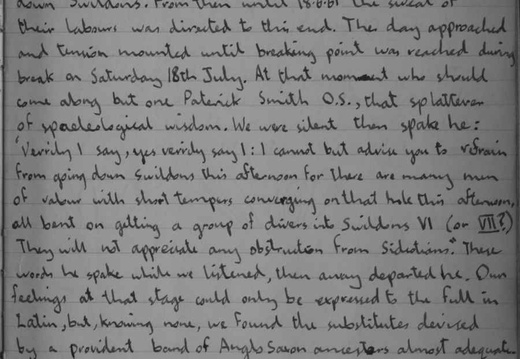 down Swildons. From then until 18.6.61 the sweat of
their labours was directed to this end. The day approached
and tension mounted until breaking point was reached during
break on Saturday 18th July. At that moment who should
come along but one Paterick Smith O.S., that splatterer
of spaeleological wisdom. We were silent then spake he:
'Verrily I say, yes verrily say I: I cannot but advise you to refrain
from going down Swildons this afternoon for there are many men
of valour with short tempers converging on that hole this afternoon,
all bent on getting a group of divers into Swildons VI (or VII?)
They will not appreciate any obstruction from Sidcotians." These
words he spake while we listened, then away departed he. Our
feelings at that stage could only be expressed to the full in
Latin, but, knowing none, we found the substitutes devised
by a provident band of Anglo Saxon ancestors almost adequate